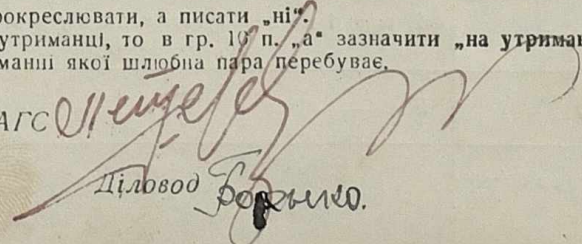 рокреслювати, а писати „ні“.
утриманці, то в гр. 10 п. „а“ зазначити „на утриман
манні якої шлюбна пара перебуває.
АГС
Діловод